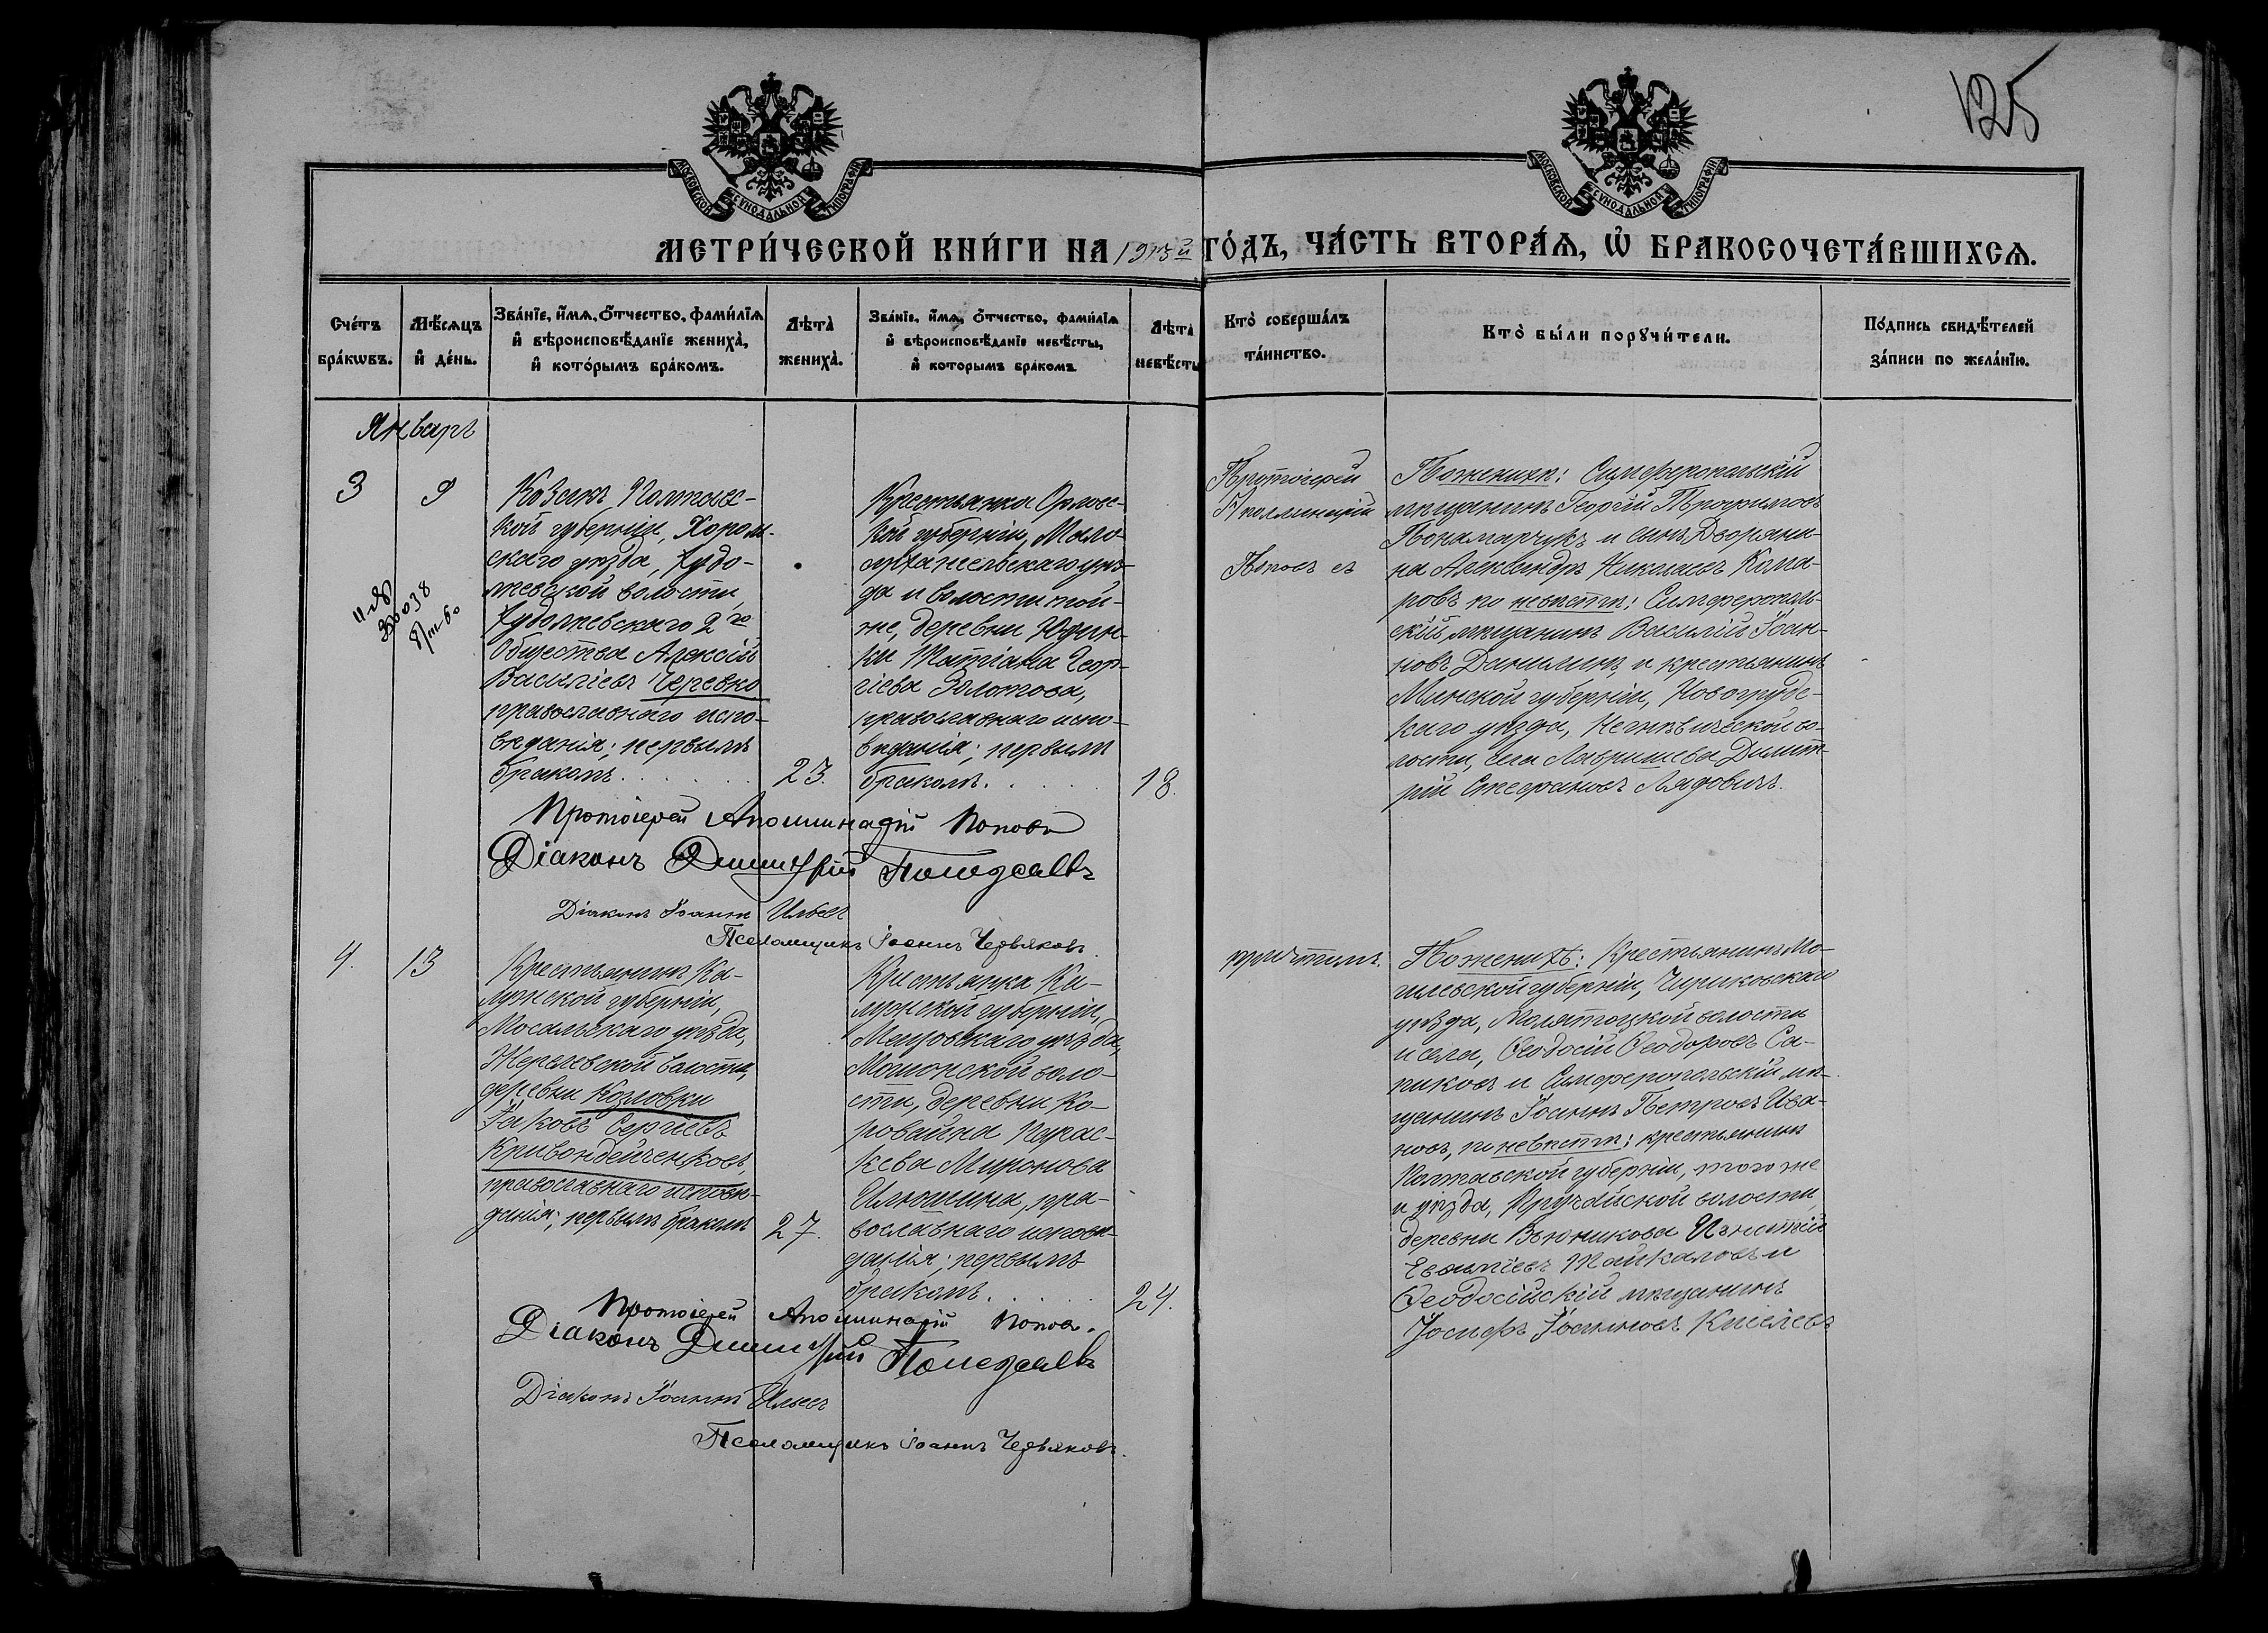 125
МОСКОВСКОЙ СѴНОДАЛЬНОЙ ТИПОГРАФІИ
МОСКОВСКОЙ СѴНОДАЛЬНОЙ ТИПОГРАФІИ
МЕТРИ́ЧЕСКОЙ КНИ́ГИ НА 1913й ГО́ДЪ, ЧА́СТЬ ВТОРА́Ѧ, Ѡ҆ БРАКОСОЧЕТА́ВШИХСѦ.
Сче́тъ
бра́кѡвъ.
Мѣ́сѧцъ
и҆ де́нь.
Зва́нїе, и҆́мѧ, ѻ҆́тчество, фами́лїѧ
и҆ вѣроисповѣ́данїе жениха̀,
и҆ кото́рымъ бра́комъ.
Лѣта̀
жениха̀.
Зва́нїе, и҆́мѧ, ѻ҆́тчество, фами́лїѧ
и҆ вѣроисповѣ́данїе невѣ́сты,
и҆ которымъ бра́комъ.
Лѣта̀
невѣ́сты
Кто̀ соверша́лъ
та́инство.
Кто̀ бы́ли порꙋчи́тели.
По́дпись свидѣ́телей
за́писи по жела́нїю.
Январь
3
9
Козакъ Полтавс-
кой губерніи, Хороль-
скаго уѣзда,
волости,
2го
Общества Алексій
Васильевъ Черевко
православнаго испо-
вѣданія; первымъ
бракомъ
23.
Крестьянка Орловс-
кой губерніи, Мало-
архангельскаго уѣз-
да и волости той-
же, деревни
Татіана Геор-
гіева Золотова,
православнаго испо-
вѣданія; первымъ
бракомъ.
18.
Протоіерей
Аполлинарій
Поповъ съ
По женихѣ: Симферопольскій
мѣщанинъ Георгій Трофимовъ
Понамарчукъ и сынъ Дворяни-
на Александръ Николаевъ Кома-
ровъ, по невѣстѣ: Симферополь-
скій мѣщанинъ Василій Іоан-
новъ Данилинъ и крестьянинъ
Минской губерніи, Новогрудс-
каго уѣзда, Негнѣвической во-
лости, села Лавришева Димит-
рій Стефановъ Лядовичъ.
Протоіерей Аполлинарій Поповъ
Діаконъ Димитрій
Діаконъ Іоаннъ Ильевъ
Псаломщикъ Іоаннъ Червяковъ.
4.
13
Крестьянинъ Ка-
лужской губерніи,
Мосальскаго уѣзда,
волости,
деревни Козловки
Іаковъ Сергіевъ
православнаго исповѣ-
данія; первымъ бракомъ
27.
Крестьянка Ка-
лужской губерніи,
Мещовскаго уѣзда,
воло-
сти, деревни Ко-
Парас-
кева Миронова
Илюшина, пра-
вославнаго исповѣ-
данія; первымъ
бракомъ.
24.
причтомъ.
По женихѣ: Крестьянинъ Мо-
гилевской губерніи, Чериковскаго
уѣзда, Молятичской волости
и села, Ѳеодосій Ѳеодоровъ Са-
пиковъ и Симферопольскій мѣ-
щанинъ Іоаннъ Петровъ Ива-
новъ, по невѣстѣ: крестьянинъ
Полтавской губерніи, того же
и уѣзда, волости,
деревни Игнатій
и
Ѳеодосійскій мѣщанинъ
Іосифъ Іоанновъ Киселевъ
Протоіерей Аполлинарій Поповъ.
Діаконъ Димитрій
Діаконъ Іоаннъ Ильевъ
Псаломщикъ Іоаннъ Червяковъ.